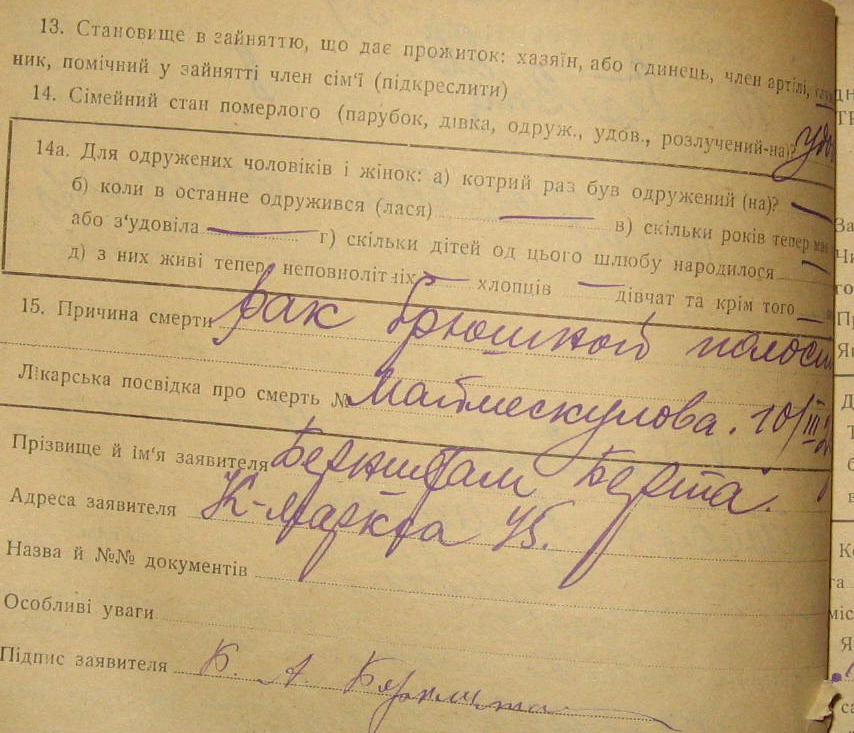 13. Становище в зайняттю, що дає прожиток: хазяїн, або єдинець, член артілі,
ник, помічний у зайнятті член сім'ї (підкреслити)
14. Сімейний стан померлого (парубок, дівка, одруж., удов., розлучений-на)? удов
14а. Для одружених чоловіків і жінок: а) котрий раз був одружений (на)? —
б) коли в останнє одружився (лася) — в) скільки років тепер має
або з'удовіла — г) скільки дітей од цього шлюбу народилося —
д) з них живі тепер неповнолітніх — хлопців — дівчат та крім того —
15. Причина смерти рак брюшной полости
Лікарська посвідка про смерть № 10/III
Прізвище й ім'я заявителя Берта
Адреса заявителя К-Маркса 45.
Назва й №№ документів
Особливі уваги
Підпис заявителя Б. А.